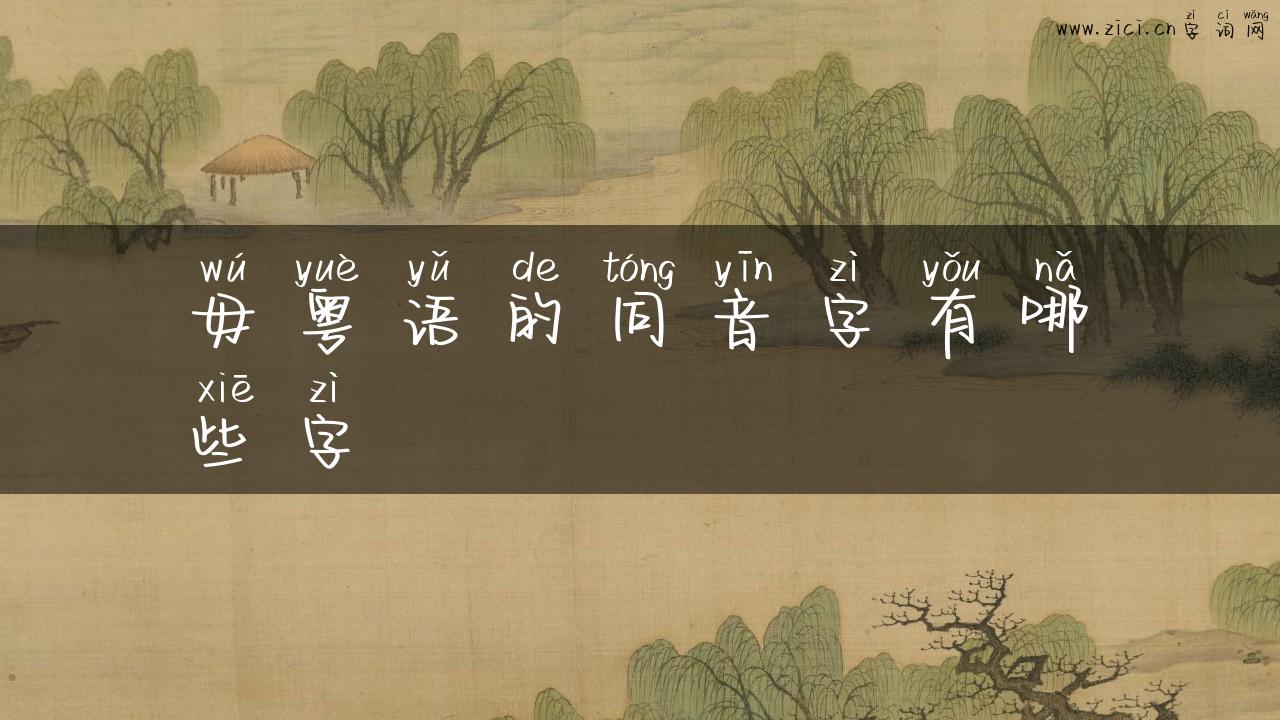 zì cí wǎng
www.zici.cn字词网
wú yuè yǔ de tóng yīn zì yǒu nǎ
毋粤语的同音字有哪
xiē zì
些字